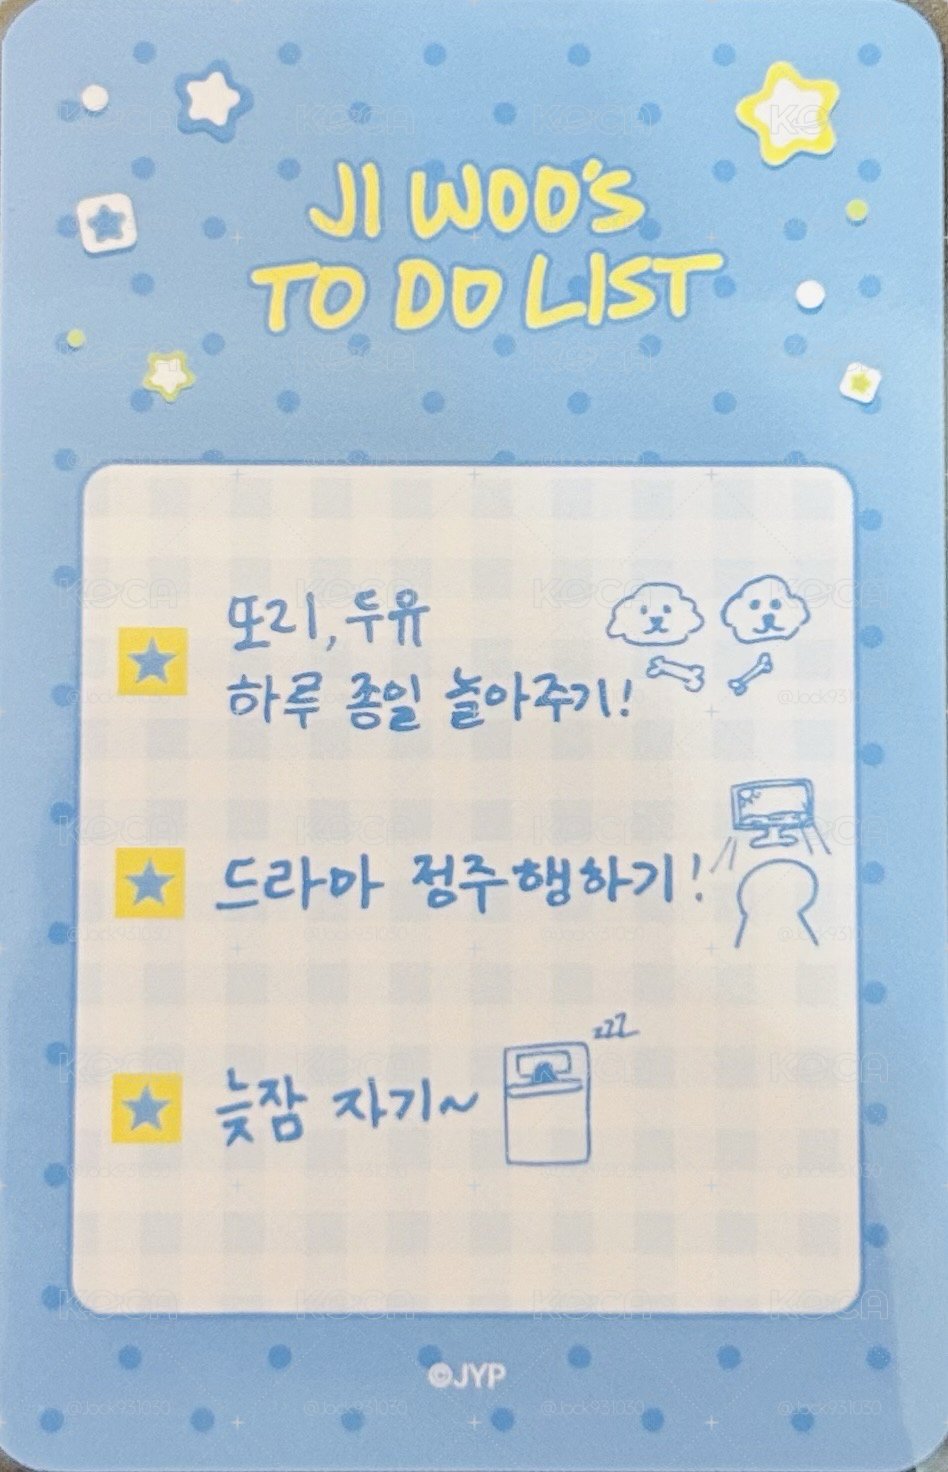 JI WOO'S
TO DO LIST
또리, 두유
하루 종일 놀아주기!
드라마 정주행하기!
늦잠 자기~
zzz
©JYP
KOCA
@Jock931030